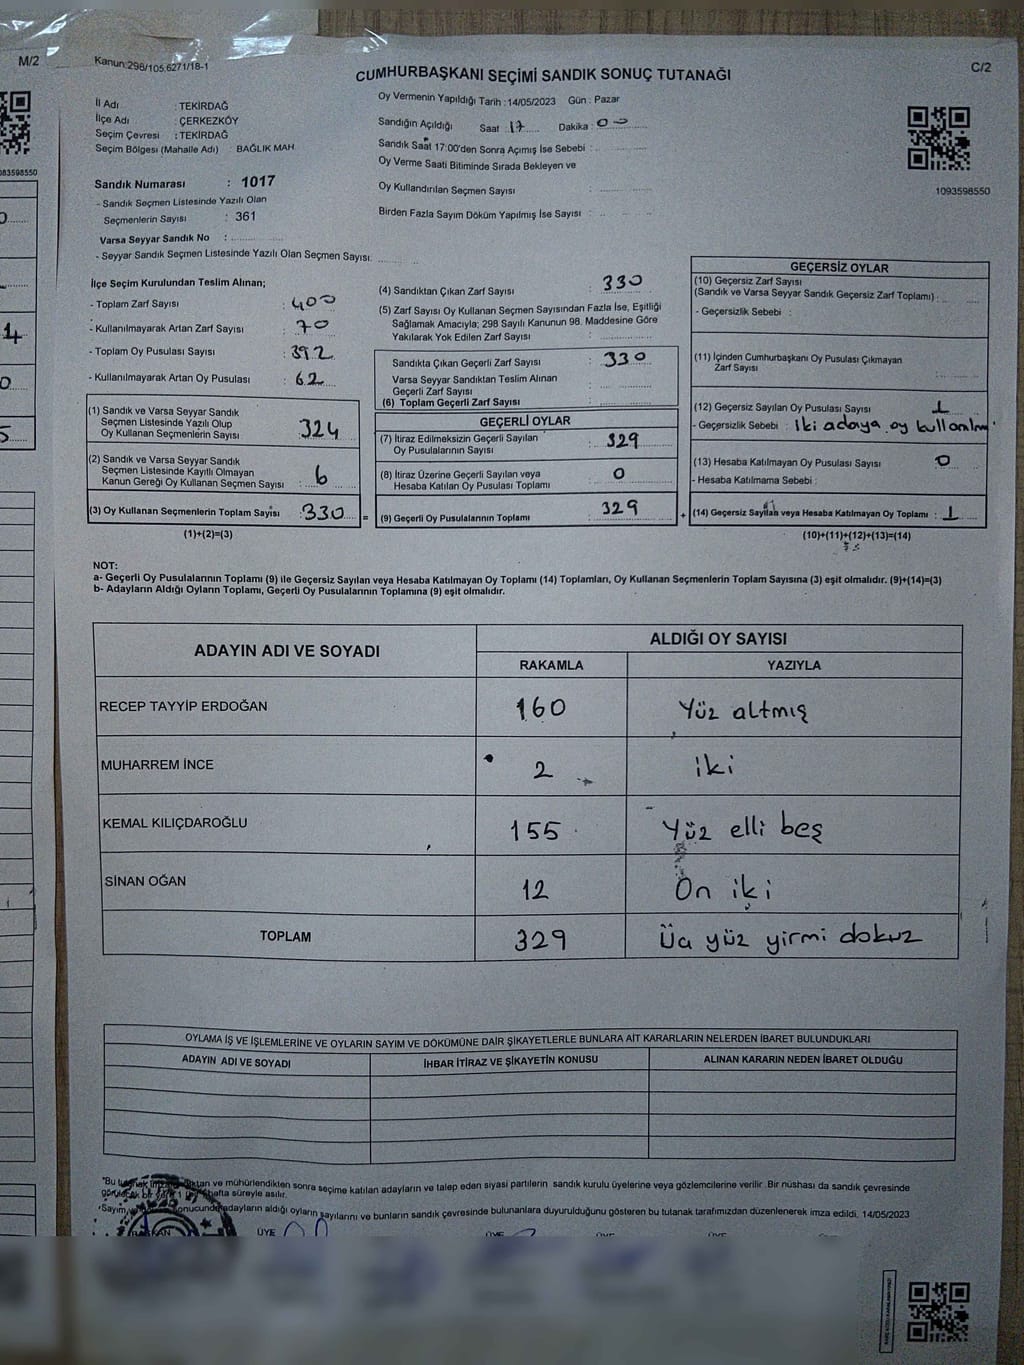 M/2
Kanun:298/105,6271/18-1
C/2
CUMHURBAŞKANI SEÇİMİ SANDIK SONUÇ TUTANAĞI
İl Adı : TEKİRDAĞ
İlçe Adı : ÇERKEZKÖY
Seçim Çevresi : TEKİRDAĞ
Seçim Bölgesi (Mahalle Adı) : BAĞLIK MAH.
Sandık Numarası : 1017
- Sandık Seçmen Listesinde Yazılı Olan
Seçmenlerin Sayısı : 361
Varsa Seyyar Sandık No :
- Seyyar Sandık Seçmen Listesinde Yazılı Olan Seçmen Sayısı:
Oy Vermenin Yapıldığı Tarih : 14/05/2023 Gün : Pazar
Sandığın Açıldığı Saat 17 Dakika : 00
Sandık Saat 17:00'den Sonra Açımış İse Sebebi :
Oy Verme Saati Bitiminde Sırada Bekleyen ve
Oy Kullandırılan Seçmen Sayısı :
Birden Fazla Sayım Döküm Yapılmış İse Sayısı :
1093598550
083598550
İlçe Seçim Kurulundan Teslim Alınan;
- Toplam Zarf Sayısı : 400
- Kullanılmayarak Artan Zarf Sayısı : 70
- Toplam Oy Pusulası Sayısı : 392
- Kullanılmayarak Artan Oy Pusulası : 62
(1) Sandık ve Varsa Seyyar Sandık
Seçmen Listesinde Yazılı Olup
Oy Kullanan Seçmenlerin Sayısı : 324
(2) Sandık ve Varsa Seyyar Sandık
Seçmen Listesinde Kayıtlı Olmayan
Kanun Gereği Oy Kullanan Seçmen Sayısı : 6
(3) Oy Kullanan Seçmenlerin Toplam Sayısı : 330
(1)+(2)=(3)
(4) Sandıktan Çıkan Zarf Sayısı : 330
(5) Zarf Sayısı Oy Kullanan Seçmen Sayısından Fazla İse, Eşitliği
Sağlamak Amacıyla; 298 Sayılı Kanunun 98. Maddesine Göre
Yakılarak Yok Edilen Zarf Sayısı :
Sandıkta Çıkan Geçerli Zarf Sayısı : 330
Varsa Seyyar Sandıktan Teslim Alınan
Geçerli Zarf Sayısı :
(6) Toplam Geçerli Zarf Sayısı :
GEÇERLİ OYLAR
(7) İtiraz Edilmeksizin Geçerli Sayılan
Oy Pusulalarının Sayısı : 329
(8) İtiraz Üzerine Geçerli Sayılan veya
Hesaba Katılan Oy Pusulası Toplamı : 0
= (9) Geçerli Oy Pusulalarının Toplamı : 329
GEÇERSİZ OYLAR
(10) Geçersiz Zarf Sayısı
(Sandık ve Varsa Seyyar Sandık Geçersiz Zarf Toplamı) :
- Geçersizlik Sebebi :
(11) İçinden Cumhurbaşkanı Oy Pusulası Çıkmayan
Zarf Sayısı :
(12) Geçersiz Sayılan Oy Pusulası Sayısı : 1
- Geçersizlik Sebebi : İki adaya oy
(13) Hesaba Katılmayan Oy Pusulası Sayısı : 0
- Hesaba Katılmama Sebebi :
+ (14) Geçersiz Sayılan veya Hesaba Katılmayan Oy Toplamı : 1
(10)+(11)+(12)+(13)=(14)
NOT:
a- Geçerli Oy Pusulalarının Toplamı (9) ile Geçersiz Sayılan veya Hesaba Katılmayan Oy Toplamı (14) Toplamları, Oy Kullanan Seçmenlerin Toplam Sayısına (3) eşit olmalıdır. (9)+(14)=(3)
b- Adayların Aldığı Oyların Toplamı, Geçerli Oy Pusulalarının Toplamına (9) eşit olmalıdır.
ADAYIN ADI VE SOYADI
ALDIĞI OY SAYISI
RAKAMLA YAZIYLA
RECEP TAYYİP ERDOĞAN 160 Yüz altmış
MUHARREM İNCE 2 iki
KEMAL KILIÇDAROĞLU 155 Yüz elli beş
SİNAN OĞAN 12 On iki
TOPLAM 329 Üç yüz yirmi dokuz
OYLAMA İŞ VE İŞLEMLERİNE VE OYLARIN SAYIM VE DÖKÜMÜNE DAİR ŞİKAYETLERLE BUNLARA AİT KARARLARIN NELERDEN İBARET BULUNDUKLARI
ADAYIN ADI VE SOYADI İHBAR İTİRAZ VE ŞİKAYETİN KONUSU ALINAN KARARIN NEDEN İBARET OLDUĞU
*Bu ve mühürlendikten sonra seçime katılan adayların ve talep eden siyasi partilerin sandık kurulu üyelerine veya gözlemcilerine verilir. Bir nüshası da sandık çevresinde
bir yere 1 hafta süreyle asılır.
adayların aldığı oyların sayılarını ve bunların sandık çevresinde bulunanlara duyurulduğunu gösteren bu tutanak tarafımızdan düzenlenerek imza edildi. 14/05/2023
BAŞKAN ÜYE ÜYE ÜYE ÜYE ÜYE